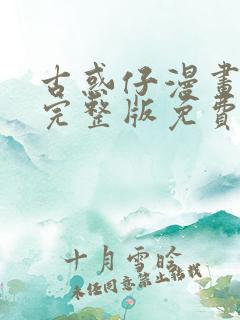 古惑仔漫畫
完整版免費
十月雪晗
未经同意禁止转载